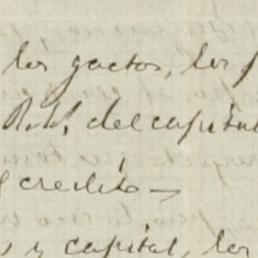 los gastos, los
del capital
credito —
y capital, los